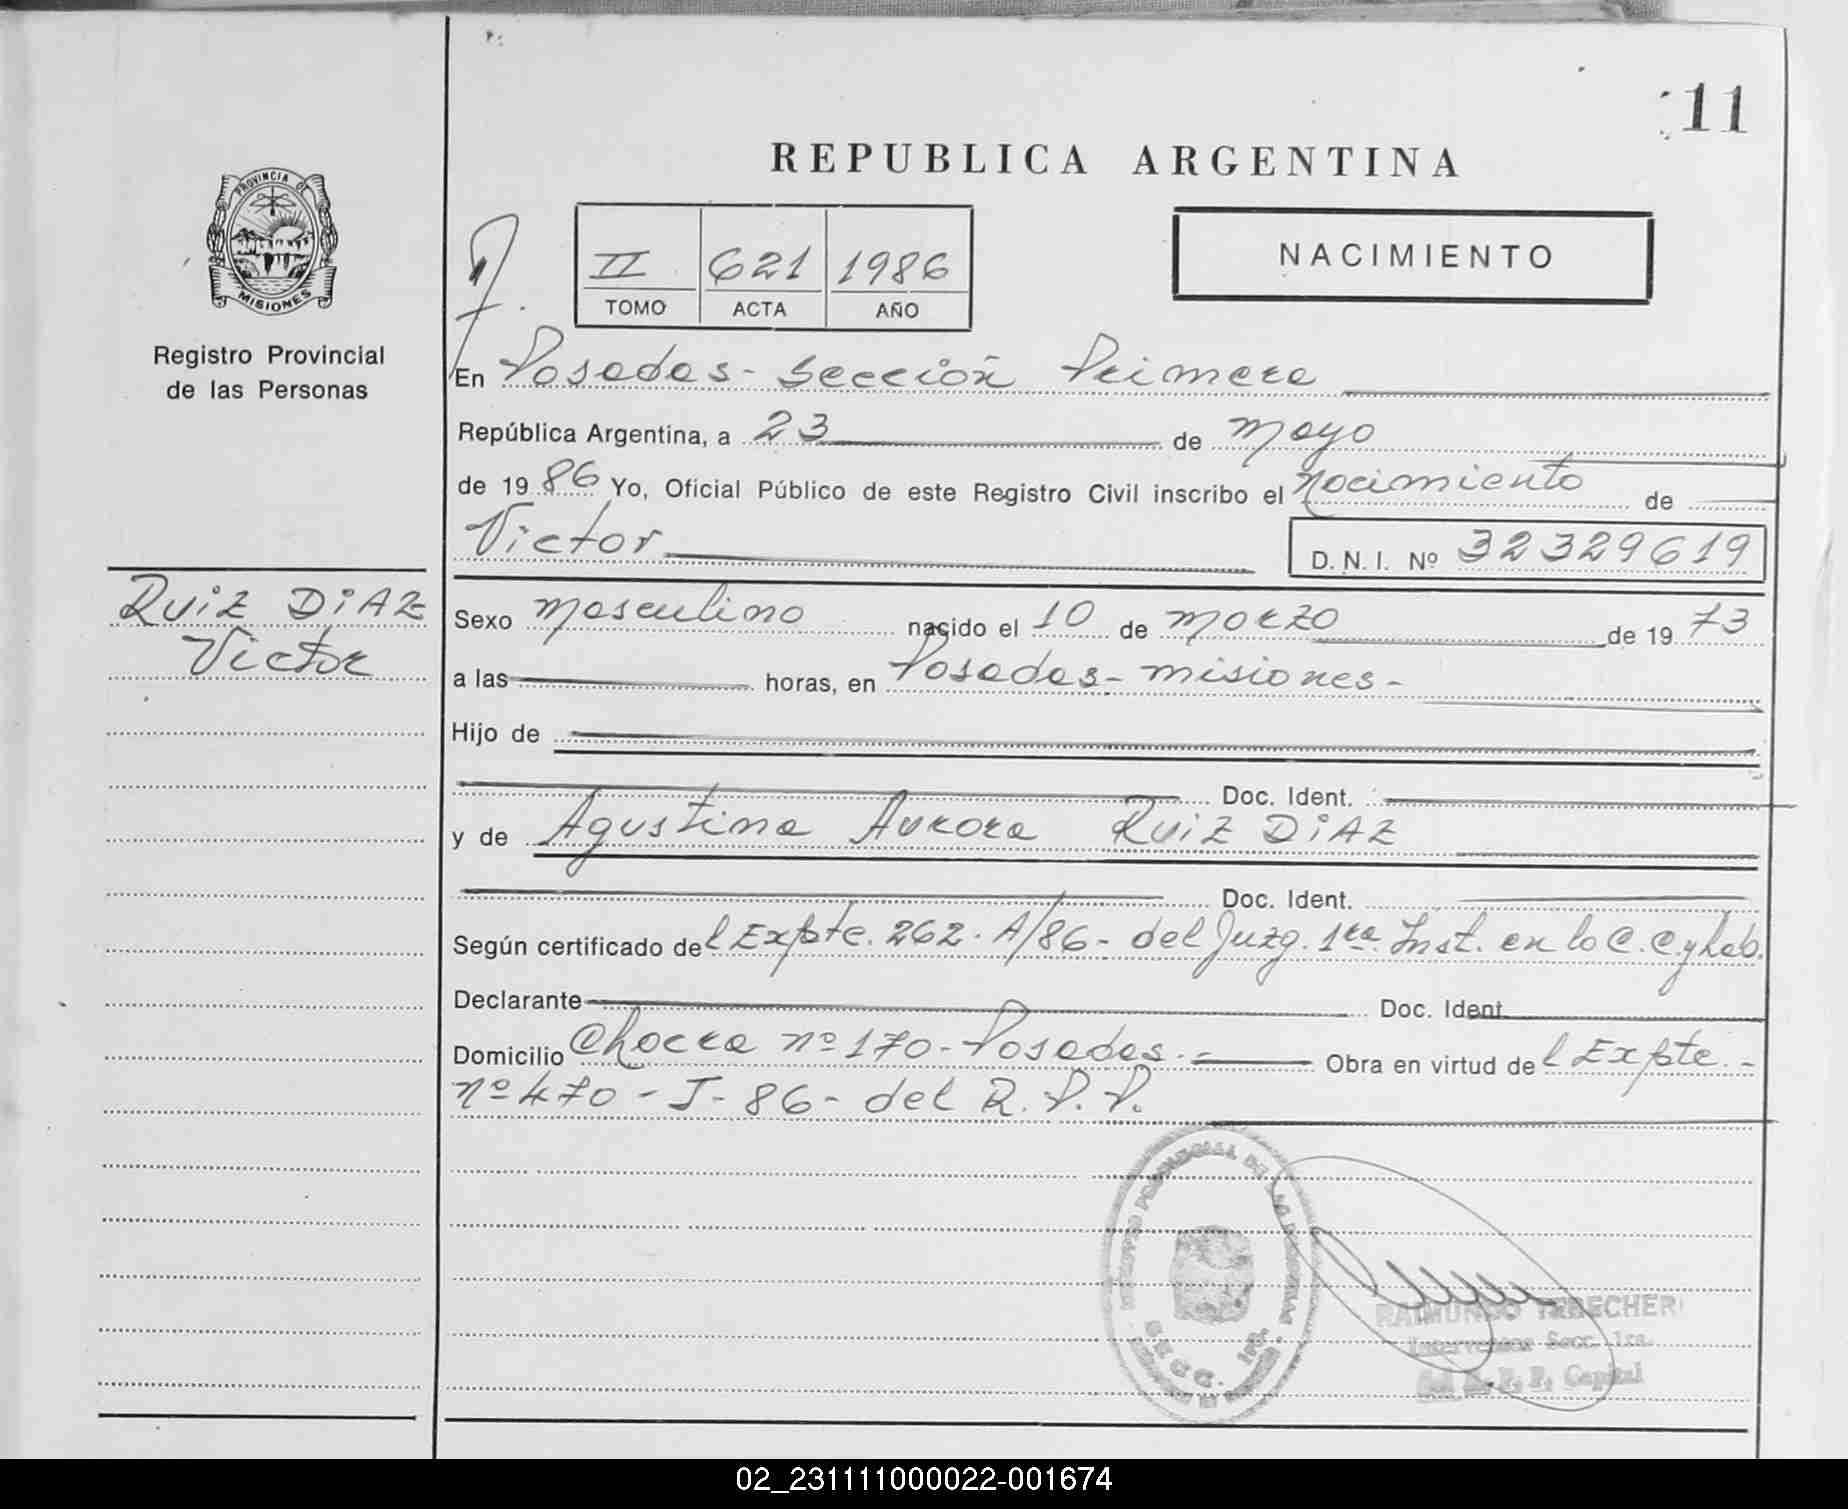 11
REPUBLICA ARGENTINA
PROVINCIA DE
MISIONES
Registro Provincial
de las Personas
II 621 1986
TOMO ACTA AÑO
NACIMIENTO
En Posadas - Sección Primera
República Argentina, a 23 de mayo
de 1986 Yo, Oficial Público de este Registro Civil inscribo el nacimiento de
Victor D.N.I. Nº 32329619
RUIZ DIAZ
Victor
Sexo masculino nacido el 10 de marzo de 1973
a las horas, en Posadas - misiones -
Hijo de
Doc. Ident.
y de Agustina Aurora RUIZ DIAZ
Doc. Ident.
Según certificado del Expte. 262. A/86 - del Juzg. 1ra. Inst. en lo C. C. y Lab.
Declarante Doc. Ident
Domicilio Chacra nº 170 - Posadas. - Obra en virtud del Expte. -
nº 470 - J - 86 - del R. P. P.
SECC. 1ra.
RAIMUNDO
Interventor Secc. 1ra.
R. P. P. Capital
02_231111000022-001674